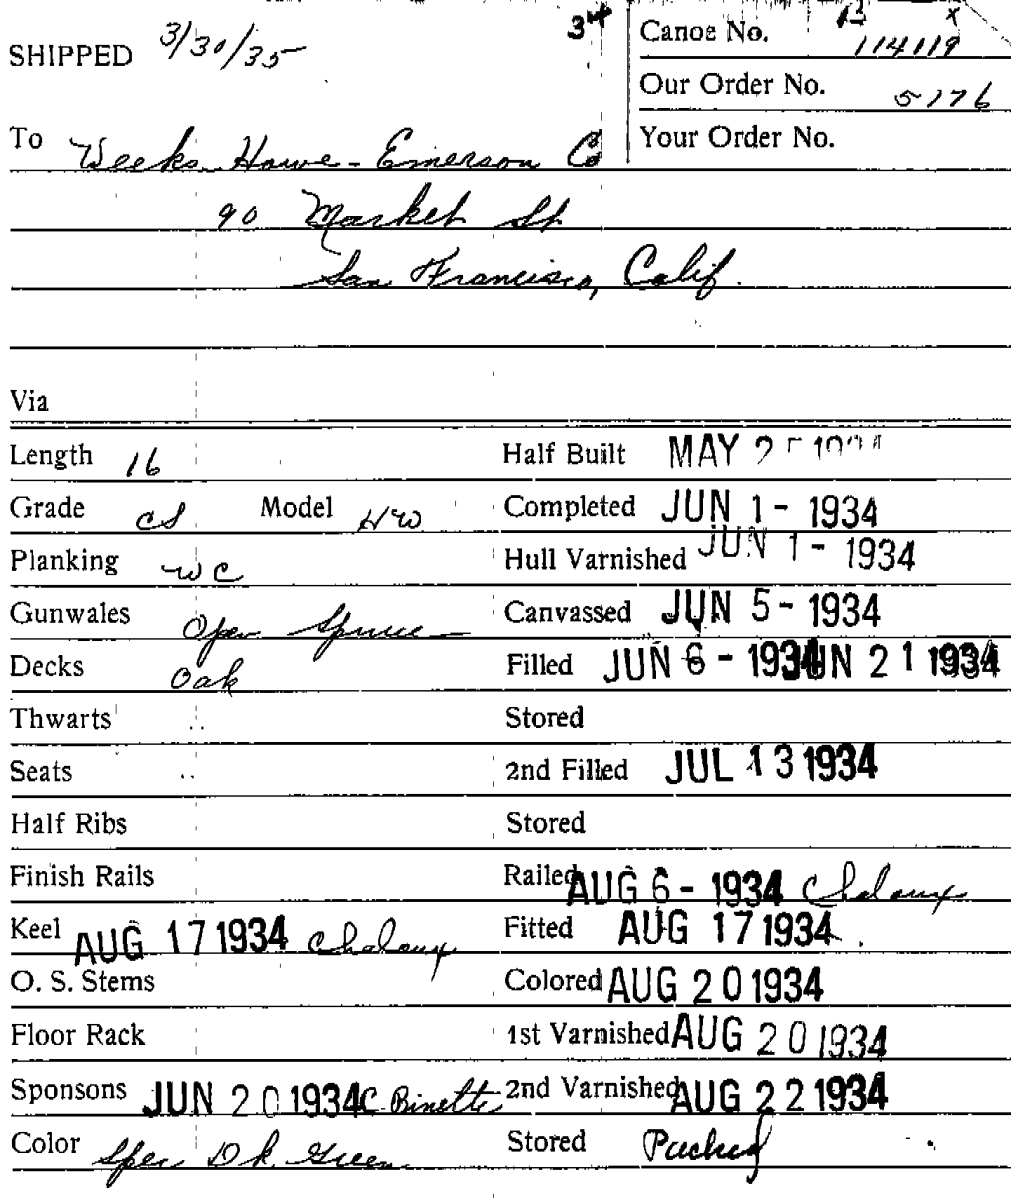 SHIPPED 3/30/35 34 Canoe No. 13 x 114119
Our Order No. 5176
To Weeks Howe-Emerson Co Your Order No.
90 Market St.
San Francisco, Calif.
Via
Length 16 Half Built MAY 2 1934
Grade CS Model HW Completed JUN 1 - 1934
Planking WC Hull Varnished JUN 1 - 1934
Gunwales Open Spruce Canvassed JUN 5 - 1934
Decks Oak Filled JUN 6 - 1934 JUN 21 1934
Thwarts Stored
Seats 2nd Filled JUL 13 1934
Half Ribs Stored
Finish Rails Railed AUG 6 - 1934 Chaloux
Keel AUG 17 1934 Chaloux Fitted AUG 17 1934
O. S. Stems Colored AUG 20 1934
Floor Rack 1st Varnished AUG 20 1934
Sponsons JUN 20 1934 C. Binette 2nd Varnished AUG 22 1934
Color Spec. Dk. Green Stored Packed